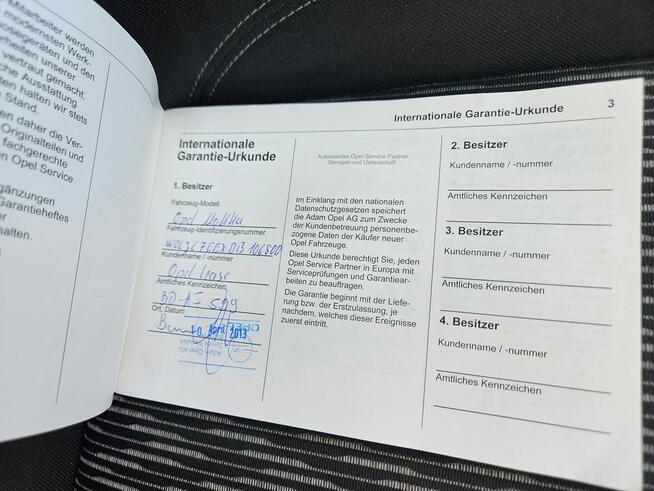 Mitarbeiter werden
modernsten Werk-
osegeräten und den
rheiten unserer
vertraut gemacht.
che Ausstattung
ten halten wir stets
Stand.
en daher die Ver-
Originalteilen und
fachgerechte
n Opel Service
gänzungen
Garantieheftes
er
halten.
Internationale Garantie-Urkunde 3
Internationale
Garantie-Urkunde
1. Besitzer
Fahrzeug-Modell
Opel Mokka
Fahrzeug-Identifizierungsnummer
Kundenname / -nummer
Opel Lease
Amtliches Kennzeichen
Ort, Datum
10. April 2013
OPEL
Adam Opel AG
Autorisierter Opel Service Partner
Stempel und Unterschrift
Im Einklang mit den nationalen
Datenschutzgesetzen speichert
die Adam Opel AG zum Zwecke
der Kundenbetreuung personenbe-
zogene Daten der Käufer neuer
Opel Fahrzeuge.
Diese Urkunde berechtigt Sie, jeden
Opel Service Partner in Europa mit
Serviceprüfungen und Garantiear-
beiten zu beauftragen.
Die Garantie beginnt mit der Liefe-
rung bzw. der Erstzulassung, je
nachdem, welches dieser Ereignisse
zuerst eintritt.
2. Besitzer
Kundenname / -nummer
Amtliches Kennzeichen
3. Besitzer
Kundenname / -nummer
Amtliches Kennzeichen
4. Besitzer
Kundenname / -nummer
Amtliches Kennzeichen